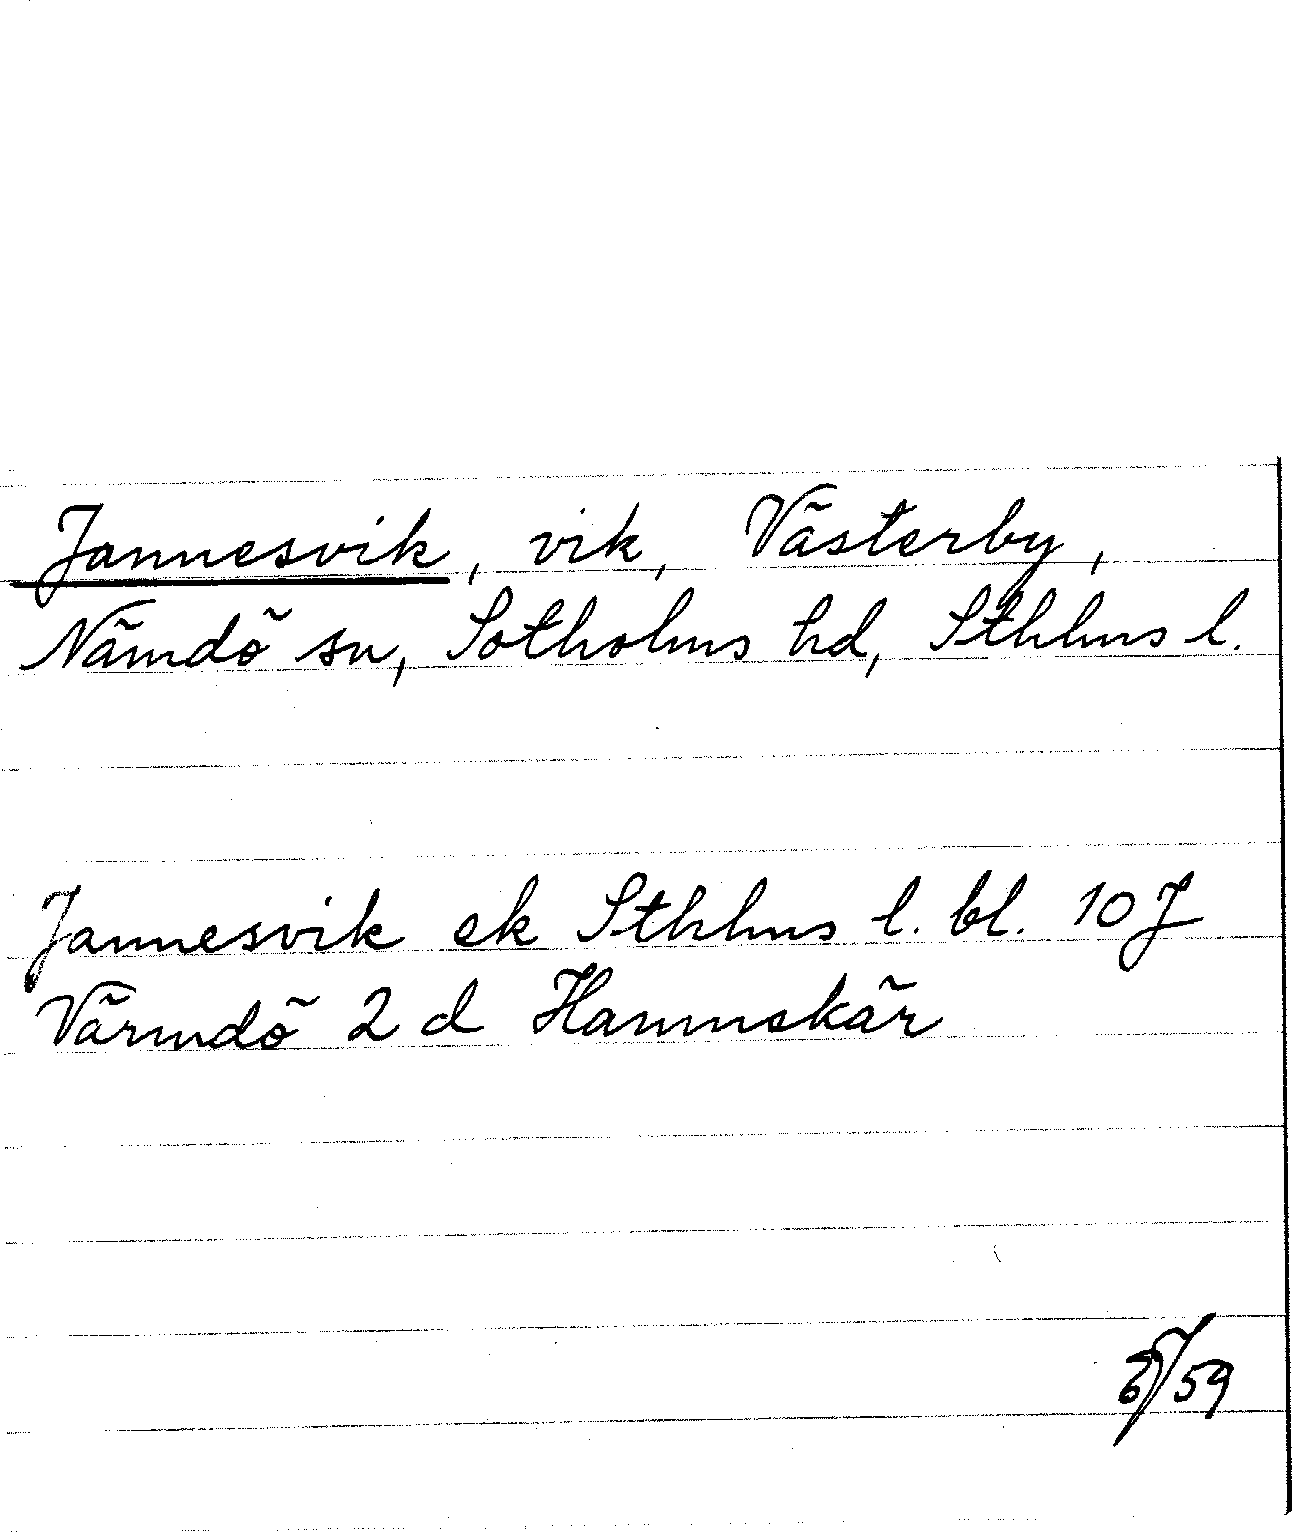 Jannesvik, vik, Västerby,
Nämdö sn, Sotholms hd, Sthlms l.
Jannesvik ek Sthlms l. bl. 10J
Värmdö 2 d Hammskär
/59